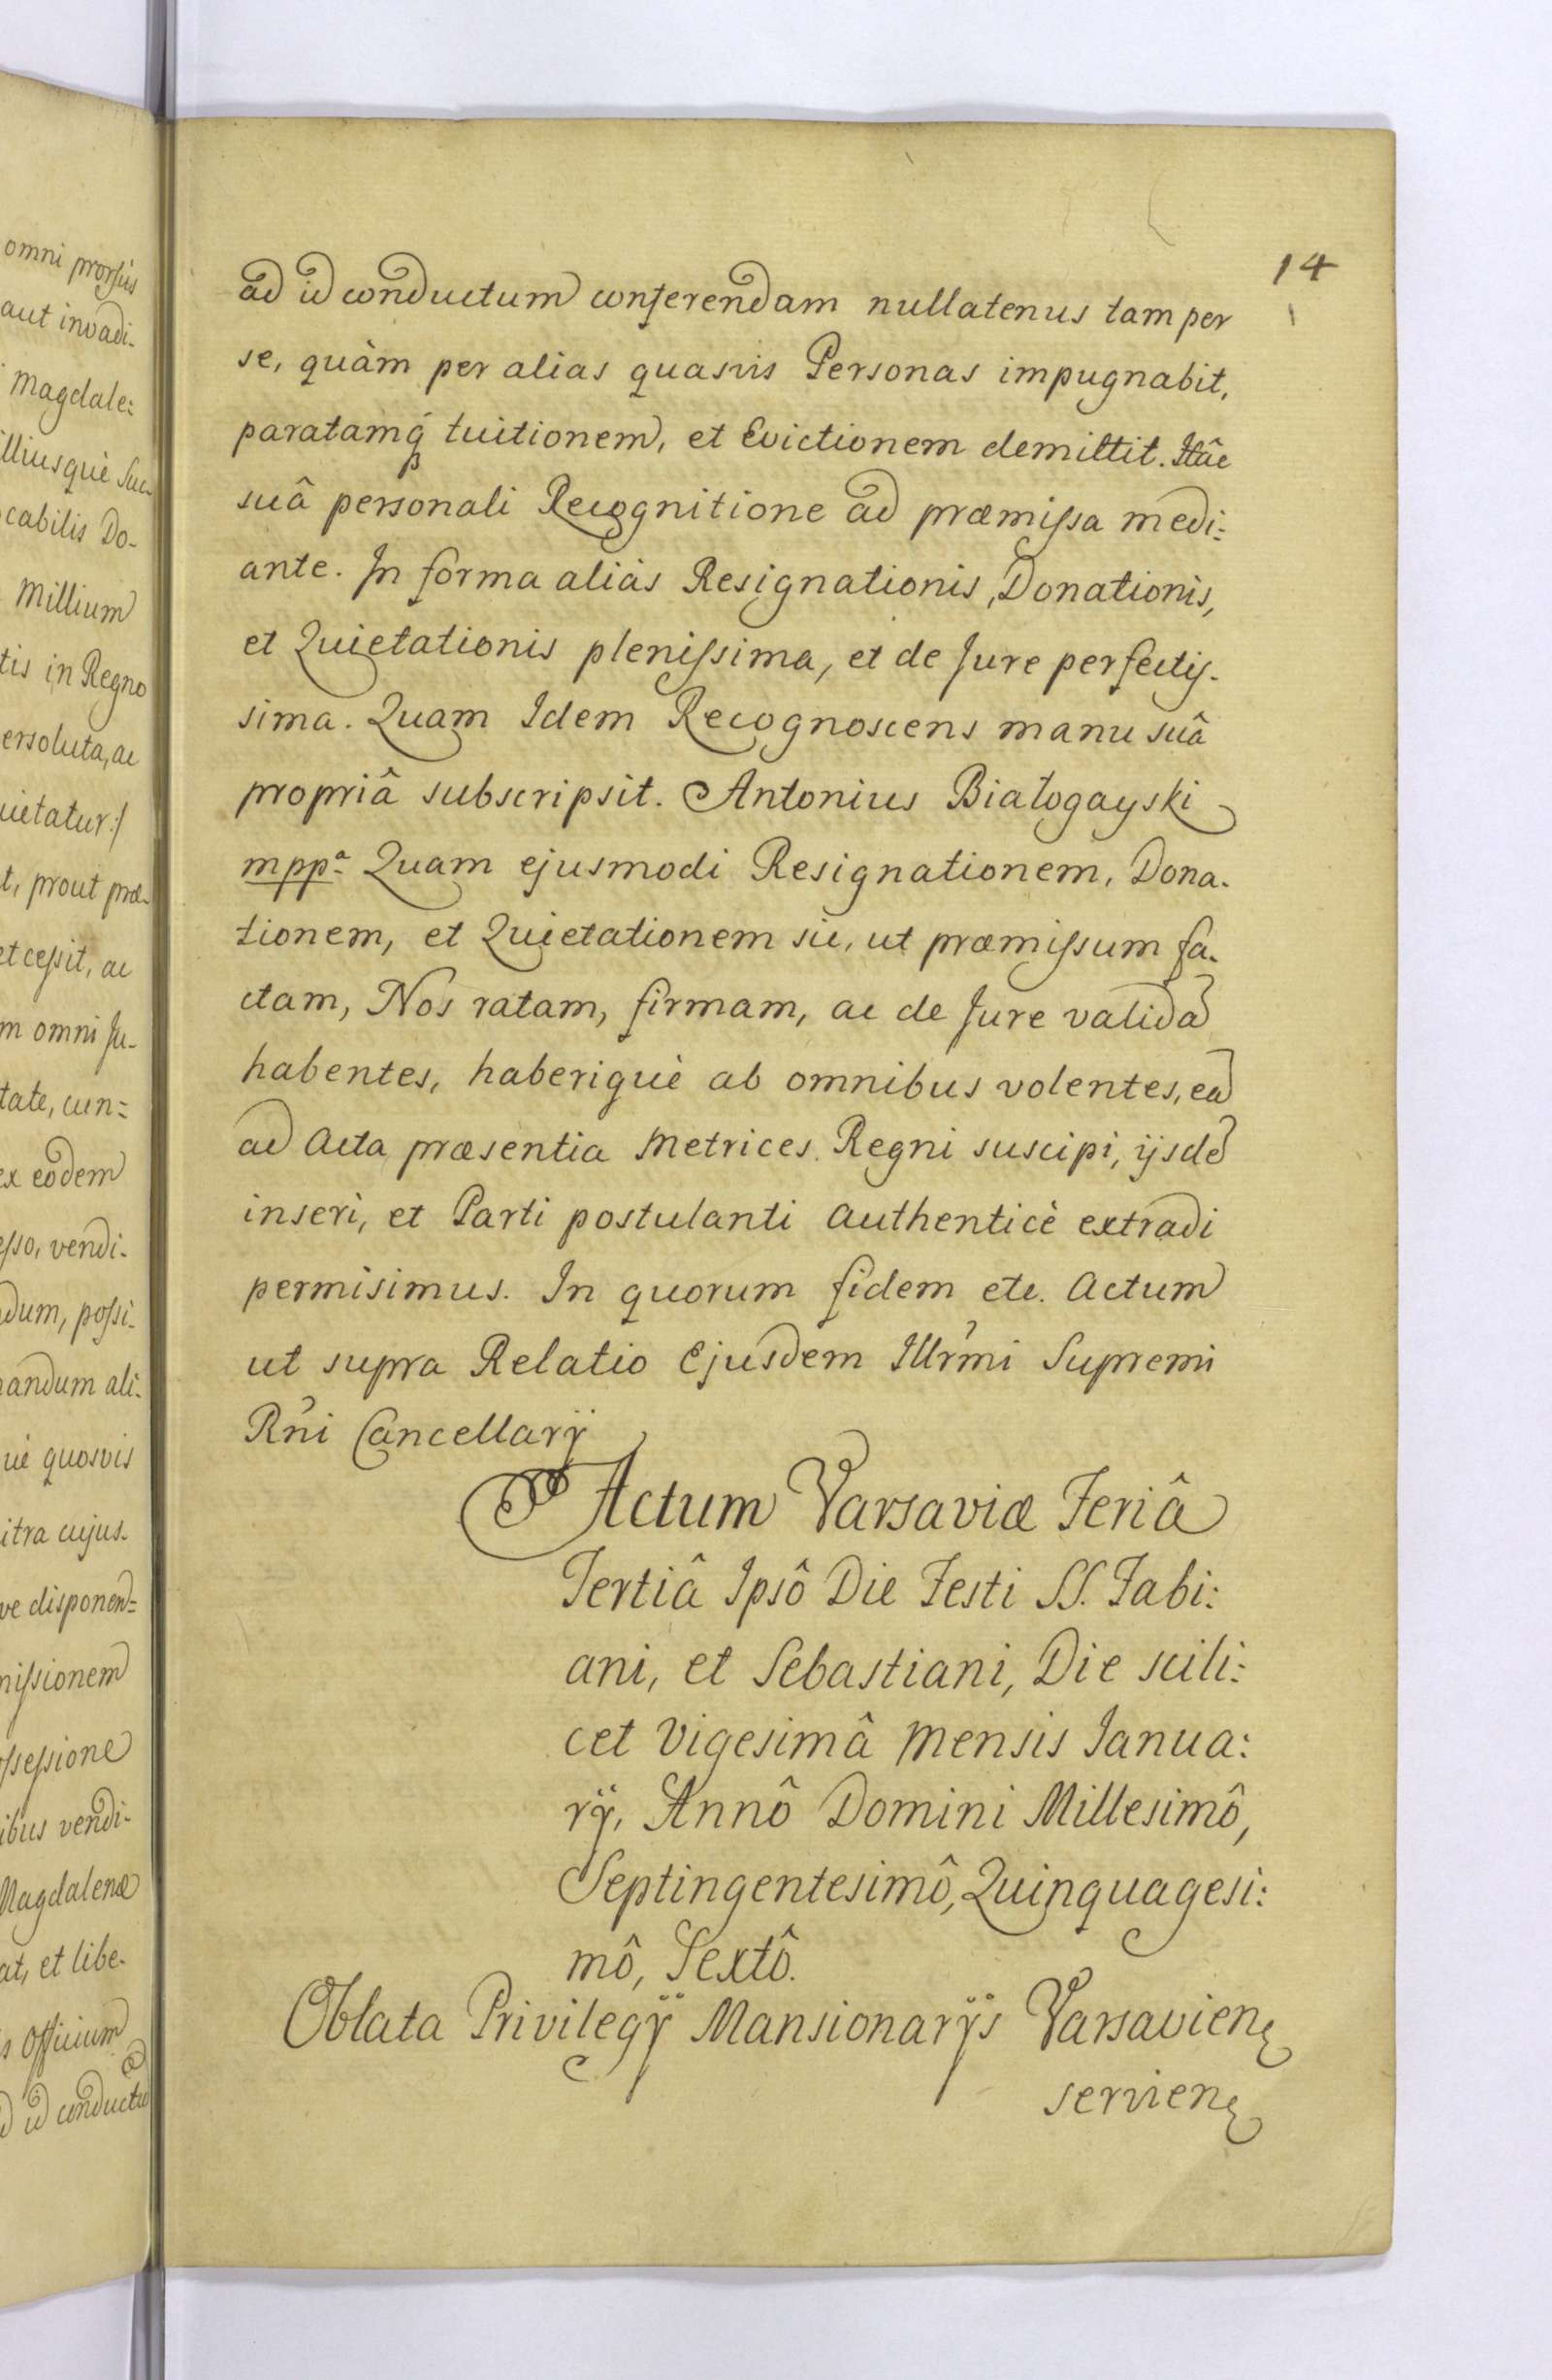 omni prorsus
aut invadi-
Magdale:
illiusquè Suc-
ocabilis Do-
Millium
tis in Regno
ersoluta, ac
uietatur:/
t, prout præ-
et cessit, ac
m omni Ju-
tate, cun=
ex eodem
esso, vendi-
dum, possi-
andum ali-
uè quosvis
itra cujus-
ve disponend=
missionem
ossessione
ibus vendi-
Magdalenæ
at, et libe-
s Officium
id conductu
14
ad id conductum conferendam nullatenus tam per
se, quàm per alias quasvis Personas impugnabit,
paratamq́ tuitionem, et Evictionem demittit. Hâc
suâ personali Recognitione ad præmissa medi:
ante. In forma aliàs Resignationis, Donationis,
et Quietationis plenissima, et de Jure perfectis-
sima. Quam Idem Recognoscens manu suâ
propriâ subscripsit. Antonius Białogayski
mppa. Quam ejusmodi Resignationem, Dona-
tionem, et Quietationem sic, ut præmissum fa-
ctam, Nos ratam, firmam, ac de Jure validã
habentes, haberiquè ab omnibus volentes, eã
ad Acta præsentia Metrices Regni suscipi, ijsdẽ
inseri, et Parti postulanti authenticè extradi
permisimus. In quorum fidem etc. Actum
ut supra Relatio Ejusdem Illr̃mi Supremi
Rñi Cancellarÿ
Actum Varsaviæ Feriâ
Tertiâ Ipsô Die Festi SS. Fabi:
ani, et Sebastiani, Die scili:
cet Vigesimâ Mensis Ianua:
rÿ, Annô Domini Millesimô,
Septingentesimô, Quinquagesi:
mô, Sextô.
Oblata Privilegÿ Mansionarÿs Varsavien̨
servien̨